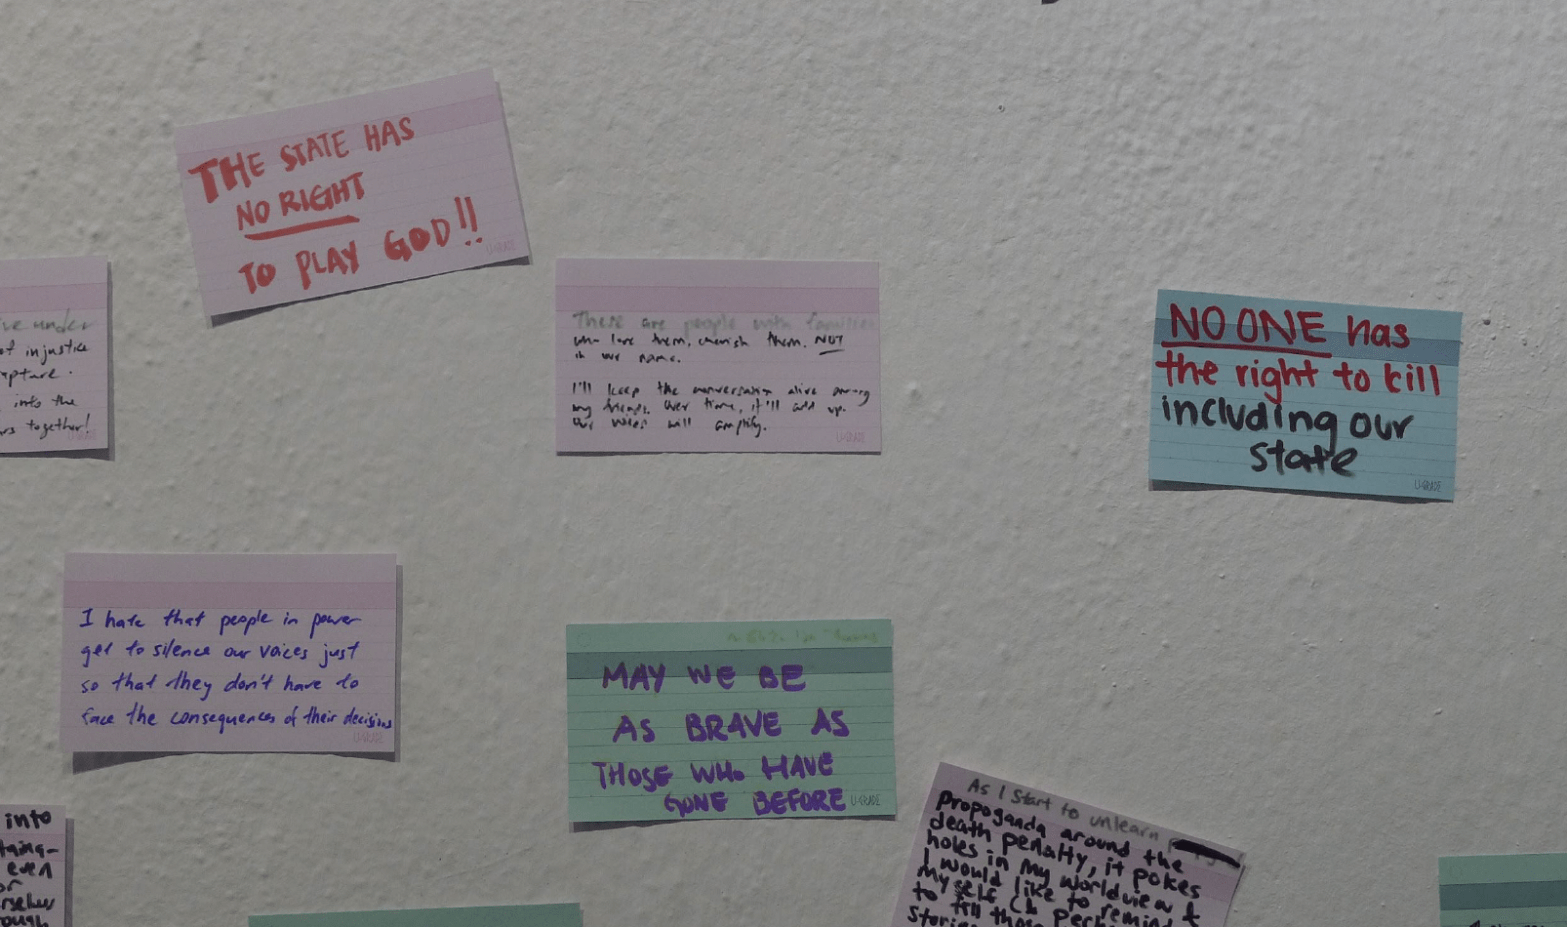 THE STATE HAS
NO RIGHT
TO PLAY GOD!!
U-GRADE
ive under
of injustice
apture.
into the
rs together!
U-GRADE
There are people with families
who love them, cherish them. NOT
in our name.
I'll keep the conversation alive among
my friends. Over time, it'll add up.
Our voices will amplify.
U-GRADE
NO ONE has
the right to kill
including our
state
U-GRADE
I hate that people in power
get to silence our voices just
so that they don't have to
face the consequences of their decisions
U-GRADE
MAY WE BE
AS BRAVE AS
THOSE WHO HAVE
GONE BEFORE
U-GRADE
into
even
or
ough
As I start to unlearn
propoganda around the
death penalty, it pokes
holes in my worldview &
I would like to remind
myself
to tell those
stories